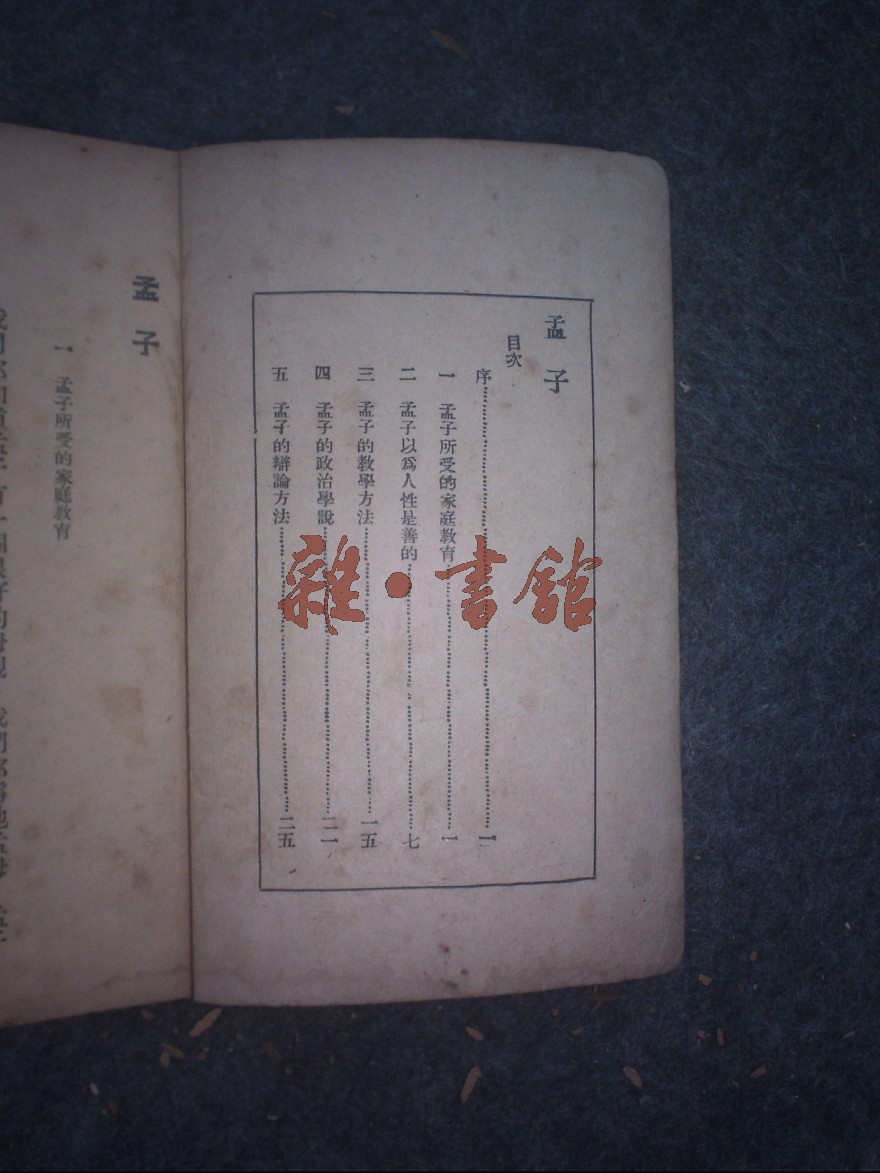 孟子
目次
序…………一
一 孟子所受的家庭教育…………一
二 孟子以爲人性是善的…………七
三 孟子的教學方法…………一五
四 孟子的政治學說…………二二
五 孟子的辯論方法…………二五
雜·書館
孟子
一 孟子所受的家庭教育